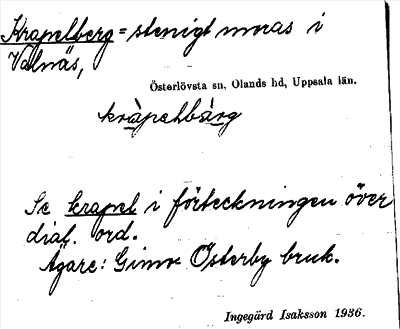 Krapelberg = stenigt moras i
Valnäs,
Österlövsta sn, Olands hd, Uppsala län.
kràpelbärg
Se krapel i förteckningen över
dial. ord.
Ägare: Gimo Österby bruk.
Ingegärd Isaksson 1936.